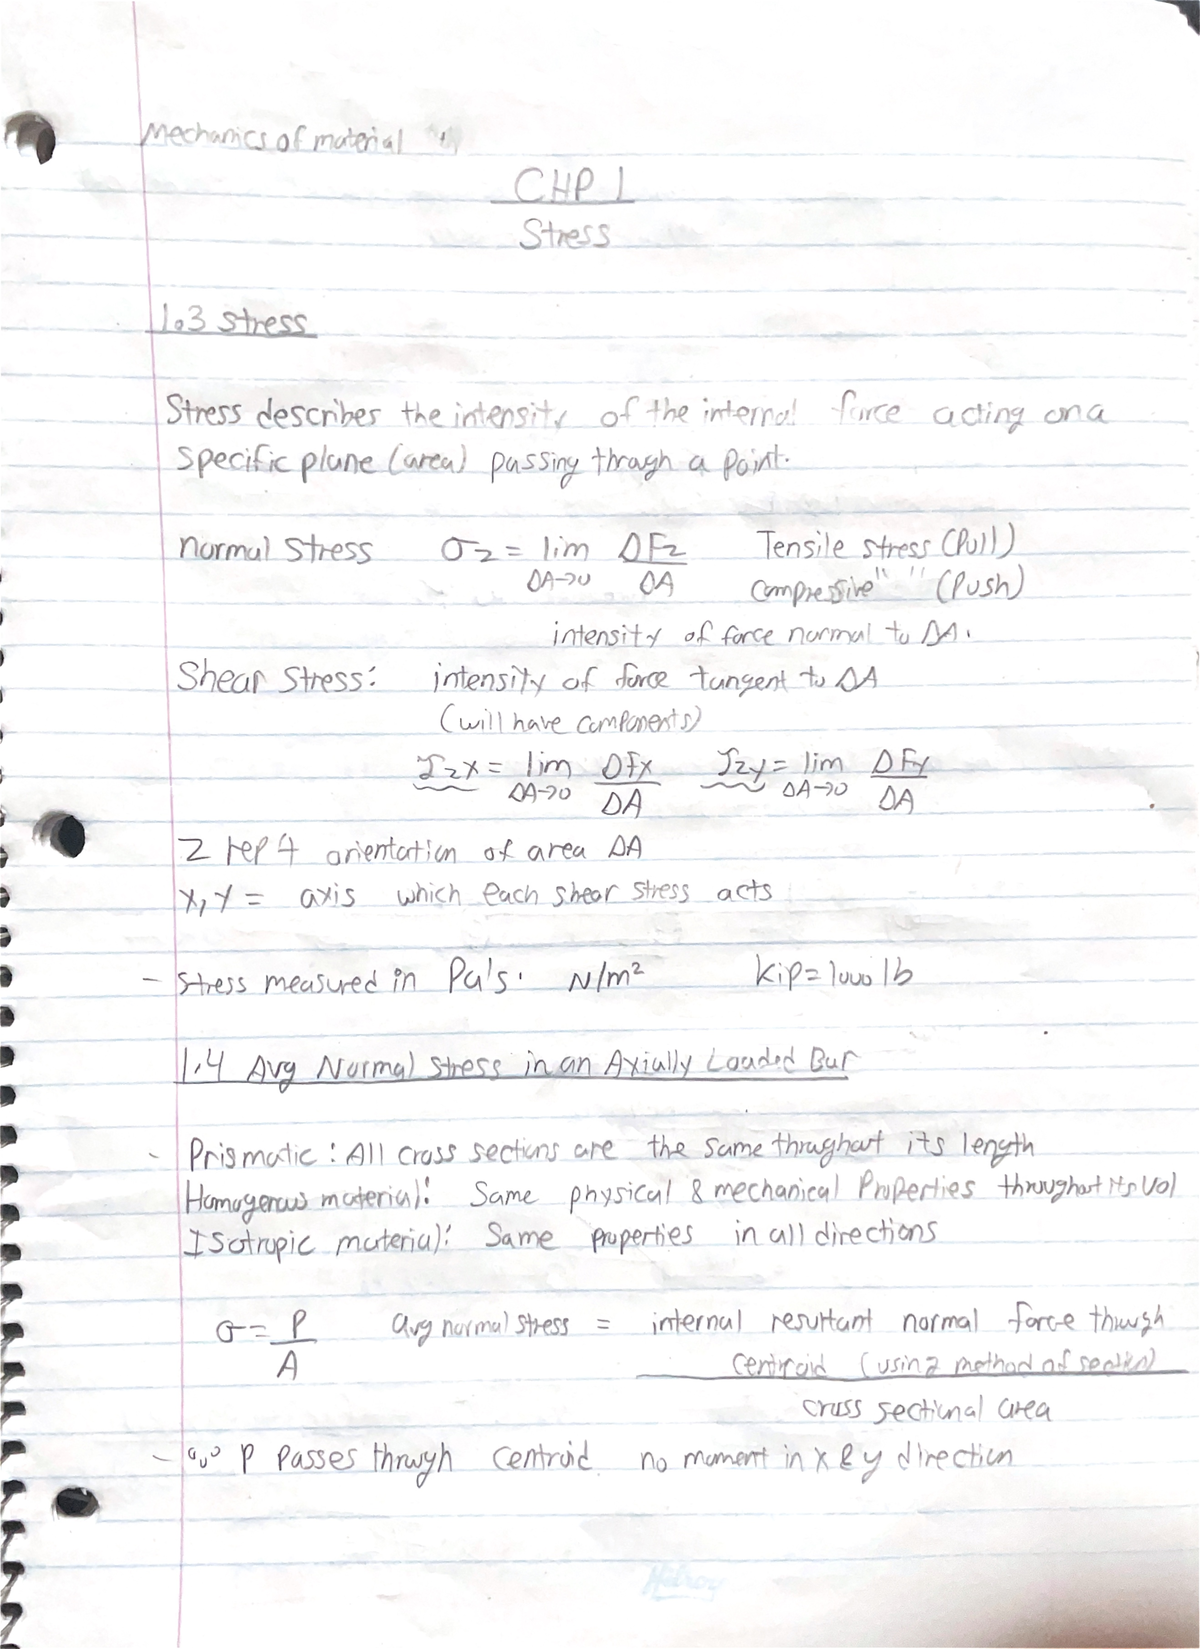 Mechanics of material
CHP 1
Stress
1.3 stress
Stress describes the intensity of the internal force acting on a
specific plane (area) passing through a point.
normal stress σz = lim ΔA→0 ΔFz/ΔA Tensile stress (Pull)
compressive " " (Push)
intensity of force normal to ΔA.
Shear stress: intensity of force tangent to ΔA
(will have components)
τzx = lim ΔA→0 ΔFx/ΔA τzy = lim ΔA→0 ΔFy/ΔA
z rep 4 orientation of area ΔA
x, y = axis which each shear stress acts
- stress measured in Pa's. N/m² kip = 1000 lb
1.4 Avg Normal stress in an Axially Loaded Bar
- Prismatic : All cross sections are the same throughout its length
Homogenous material: Same physical & mechanical Properties throughout its vol
Isotropic material: Same properties in all directions
σ = P/A avg normal stress = internal resultant normal force through
centroid (using method of section)
cross sectional area
- ∵ P passes through centroid no moment in x & y direction
Hilroy